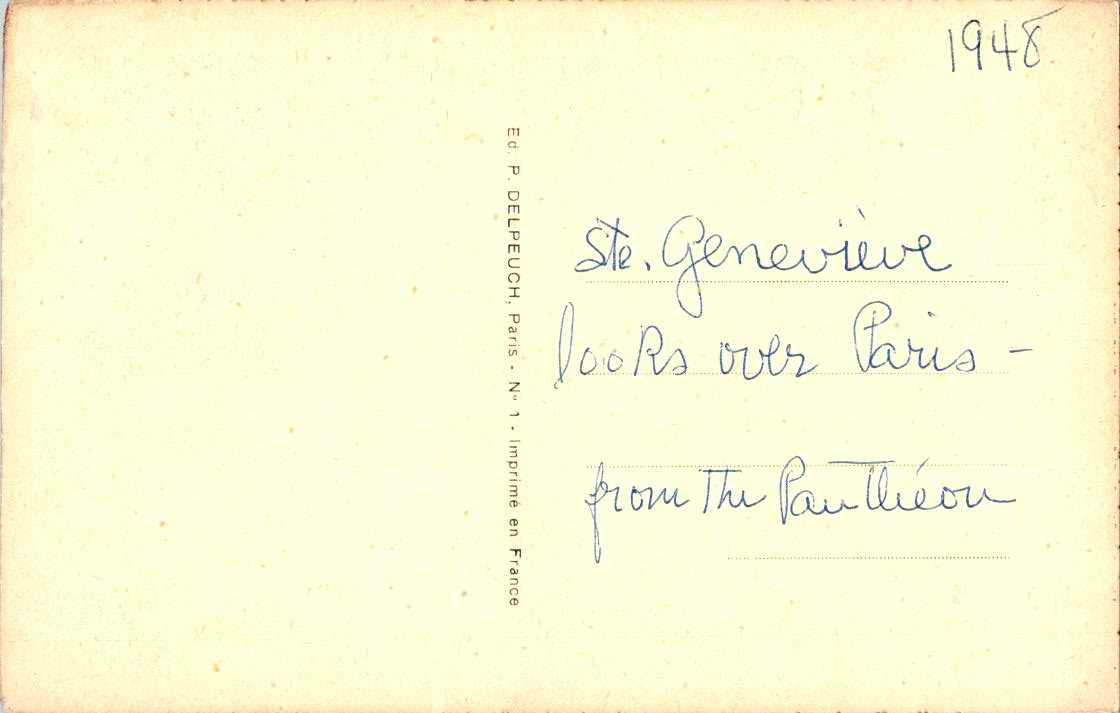 1948
Ed. P. DELPEUCH, Paris - N° 1 - Imprimé en France
Ste. Geneviève
looks over Paris -
from The Panthéon